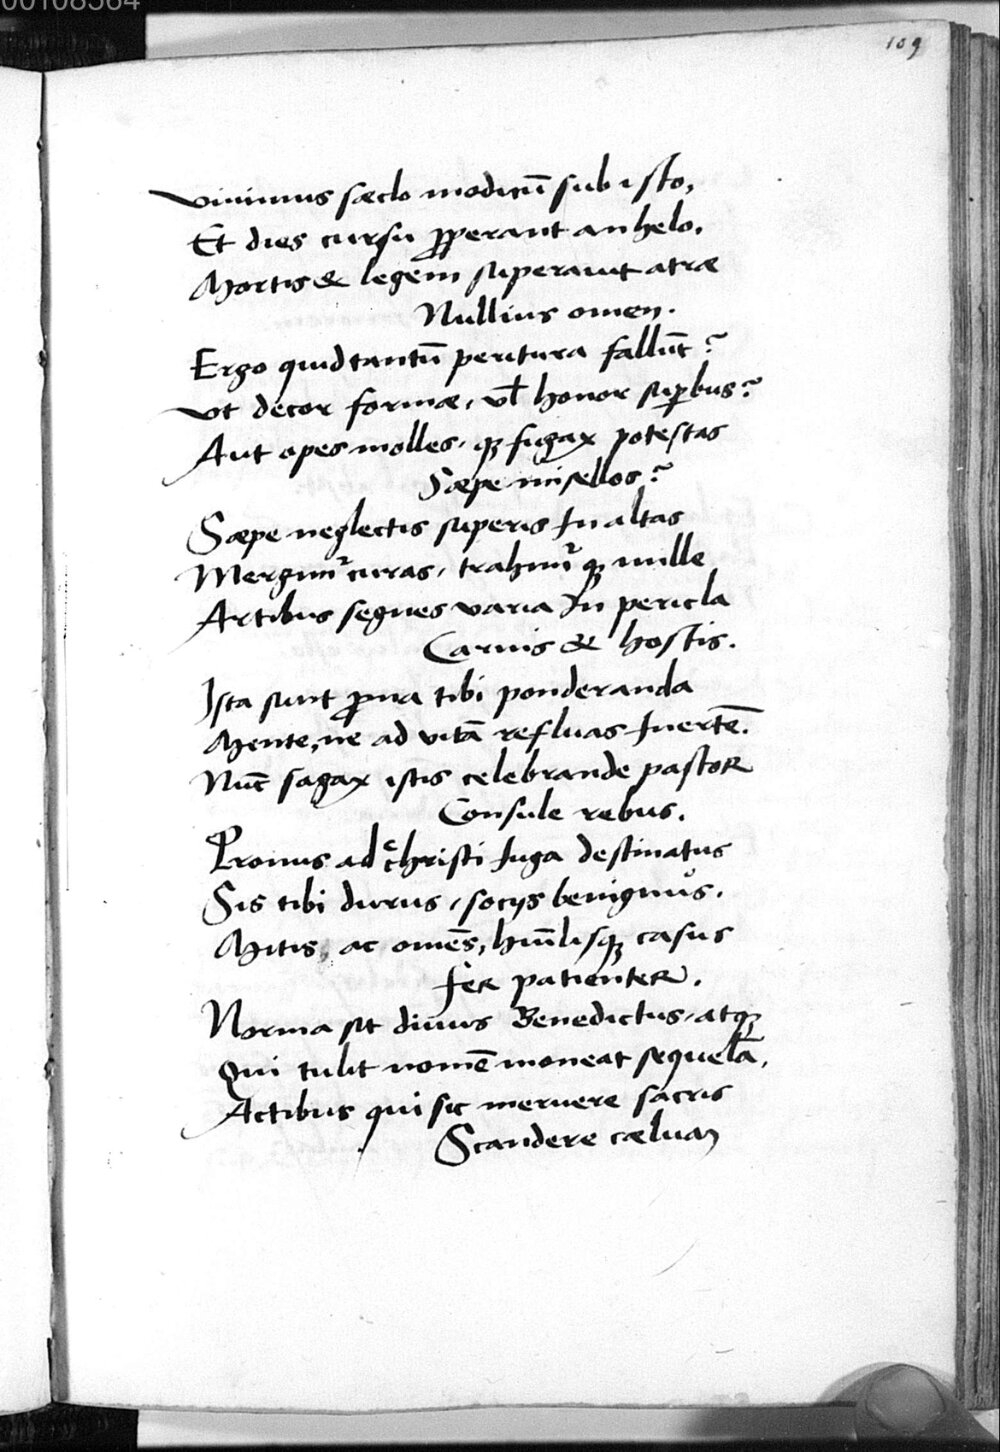 00108564
109
Viuimus sæclo modicū sub isto,
Et dies cursu ꝓperant anhelo.
Mortis & legem superauit atræ
Nullius omen.
Ergo quid tantū peritura fallūt?
Vt decor formæ, vl̄ honor suꝑbus?
Aut opes molles, qꝫ fugax potestas
Sæpe misellos?
Sæpe neglectis superis In altas
Mergimur curas, trahimurqꝫ mille
Artibus segnes varia In pericla
Carnis & hostis.
Ista sunt ꝓna tibi ponderanda
Mente, ne ad vitā refluas Inertē.
Nūc sagax istis celebrande pastor
Consule rebus.
Pronus ad christi Iuga destinatus
Sis tibi durus, socijs benignus.
Mitis, ac omēs, hūilisqꝫ casus
Fer patienter.
Norma sit diuus Benedictus, atqꝫ
Qui tulit nomē moneat sequelā,
Actibus qui sic meruere sacris
Scandere cælum